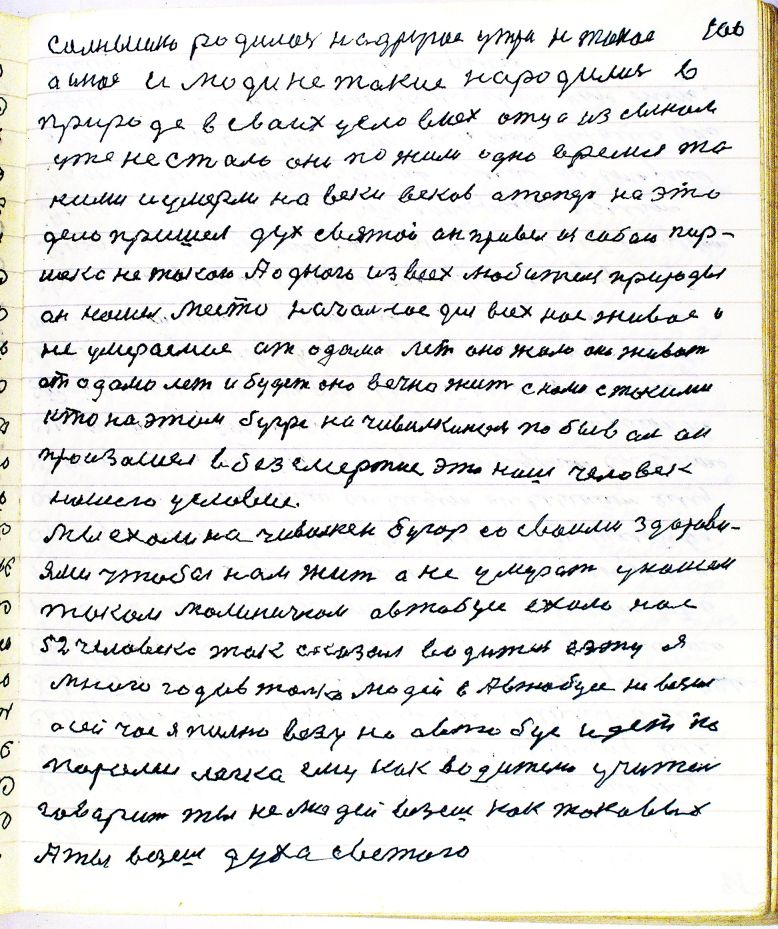 солнышко родилось на другое утро не такое
а иное и люди не такие народились в
природе в своих условиях отца из сыном
уже не стало они пожили одно время та
кими и умерли на веки веков а теперь на это
дело пришел дух святой он привел из собою пар-
ишка не такого А одного из всех любителя природы
он нашел место начальное для всех нас живое и
не умераемое ат адама лет оно жило оно живет
от адама лет и будет оно вечно жит с нами с такими
кто на этом бугре на чивилкином побывал он
произашел в безсмертие это наш человек
нашего условие.
мы ехали на чивилкен бугор со своими здоровь-
ями чтобы нам жит а не умират у нашем
таком автобусе ехало нас
52 человека так сказал водитель я
много годов только людей в Автобусе не возил
а сейчас я полно везу но автобус идеть по
легка ему как водителю учитель
говарит ты не людей везеш как таковых
А ты везеш духа светого